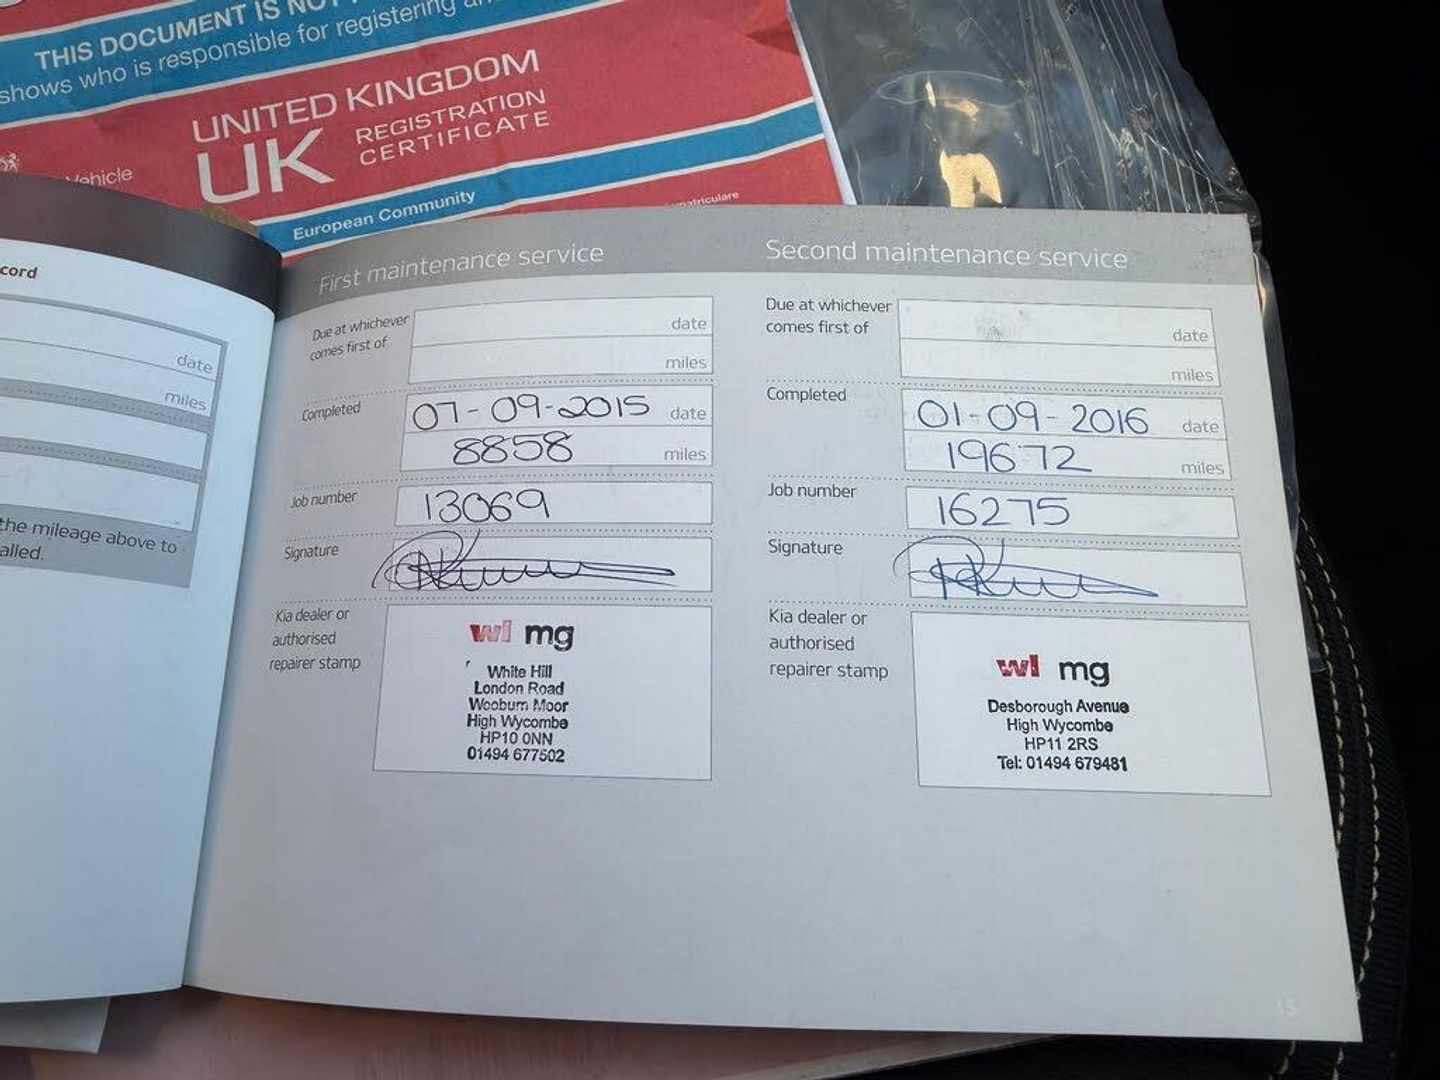 THIS DOCUMENT IS
shows who is responsible for registering
UNITED KINGDOM
UK REGISTRATION
CERTIFICATE
Vehicle
European Community
cord
date
miles
the mileage above to
alled.
First maintenance service
Due at whichever
comes first of
date
miles
Completed
07-09-2015 date
8858 miles
Job number
13069
Signature
Kia dealer or
authorised
repairer stamp
wl mg
White Hill
London Road
Wooburn Moor
High Wycombe
HP10 0NN
01494 677502
Second maintenance service
Due at whichever
comes first of
date
miles
Completed
01-09-2016 date
19672 miles
Job number
16275
Signature
Kia dealer or
authorised
repairer stamp
wl mg
Desborough Avenue
High Wycombe
HP11 2RS
Tel: 01494 679481
15